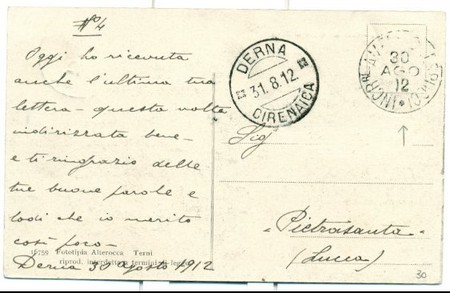 N° 4
Oggi ho ricevuta
anche l'ultima tua
lettera - questa volta
indirizzata bene -
e ti ringrazio delle
tue buone parole e
lodi che io merito
così poco -
Derna 30 agosto 1912
Fototipia Alterocca Terni
riprod. interdetta a termini di legge
DERNA
31.8.12
CIRENAICA
30
AGO
12
Sig
"Pietrasanta"
(Lucca)
30